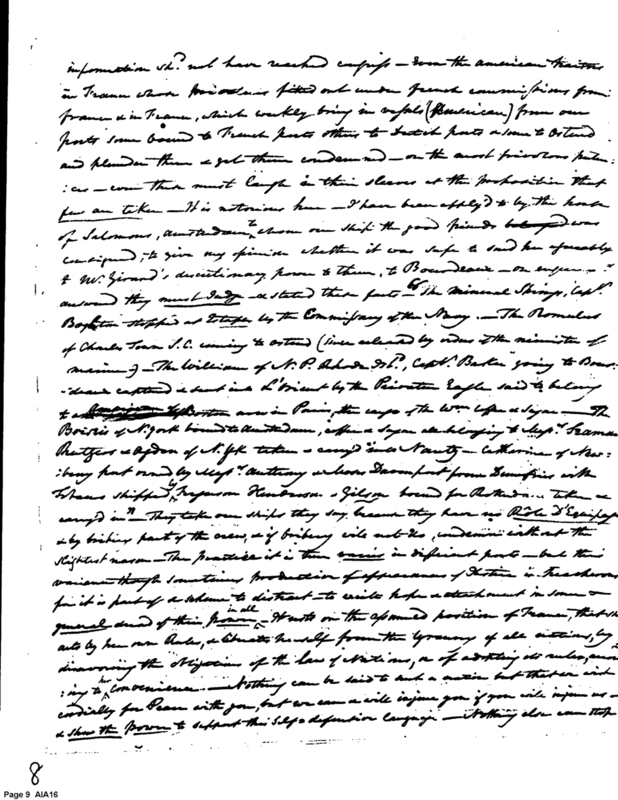 information shd. not have reached congress – Even the american traitors
in France whose Privateers fitted out under french commissions from
france & in France, which weekly bring in vessels (American) from our
ports some bound to French ports others to Dutch ports & some to Ostend
and plunder them & get them condemned – on the most frivolous preten-
:ces – even these must laugh in their sleeves at the proposition that
few are taken – It is notorious here – I have been apply'd to by the house
of Salomons, Amsterdam, to whom one ship the good friends was
consigned, to give my opinion whether it was safe to send her agreeably
to Mr. Girard's discretionary power to them, to Bourdeaux – on
answered they must Judge & stated these facts The Mineral Springs, Capt.
stopped at by the Commissary of the Navy. – The Romulus
of Charles Town S.C. coming to Ostend (since released by orders of the minister of
marine) – The William of N.P. Rhode Isld., Capt. Baker going to Bour-
:deaux captured & sent into L'Orient by the Privateer Eagle said to belong
to now in Paris, the cargo of the Wm. Coffee & Sugar – The
of N.York bound to Amsterdam, coffee & Sugar all belonging to Messrs. Seaman
& Ogden of N.Yk taken & carry'd into Nantz – Catherine of New-
:bury port owned by Messrs. & Moses Davenport from with
Tobacco shipped by Ferguson Henderson & Gibson bound for taken &
carry'd in – They take our ships they say because they have no Rôle d'Equipage
& by bribing part of the crews, & if bribery will not do, condemn without the
slightest reason – The practice it is true varies in different ports – but this
variance though sometimes productive of appearances of Justice is treacherous
for it is part of a scheme to distract – to excite hope & attachment in some &
general dread of their power in all, It rests on the assumed position of France, that she
acts by her own Rules, & liberates herself from the tyranny of all by
disavowing the obligations of the law of Nations, or of adopting its rules,
:ing to her convenience. – Nothing can be said to such a nation but that we wish
cordially for Peace with you, but we can & will injure you if you will injure us –
& shew the Power to support this Self & defensive language – Nothing else can stop
8
Page 9 AIA16